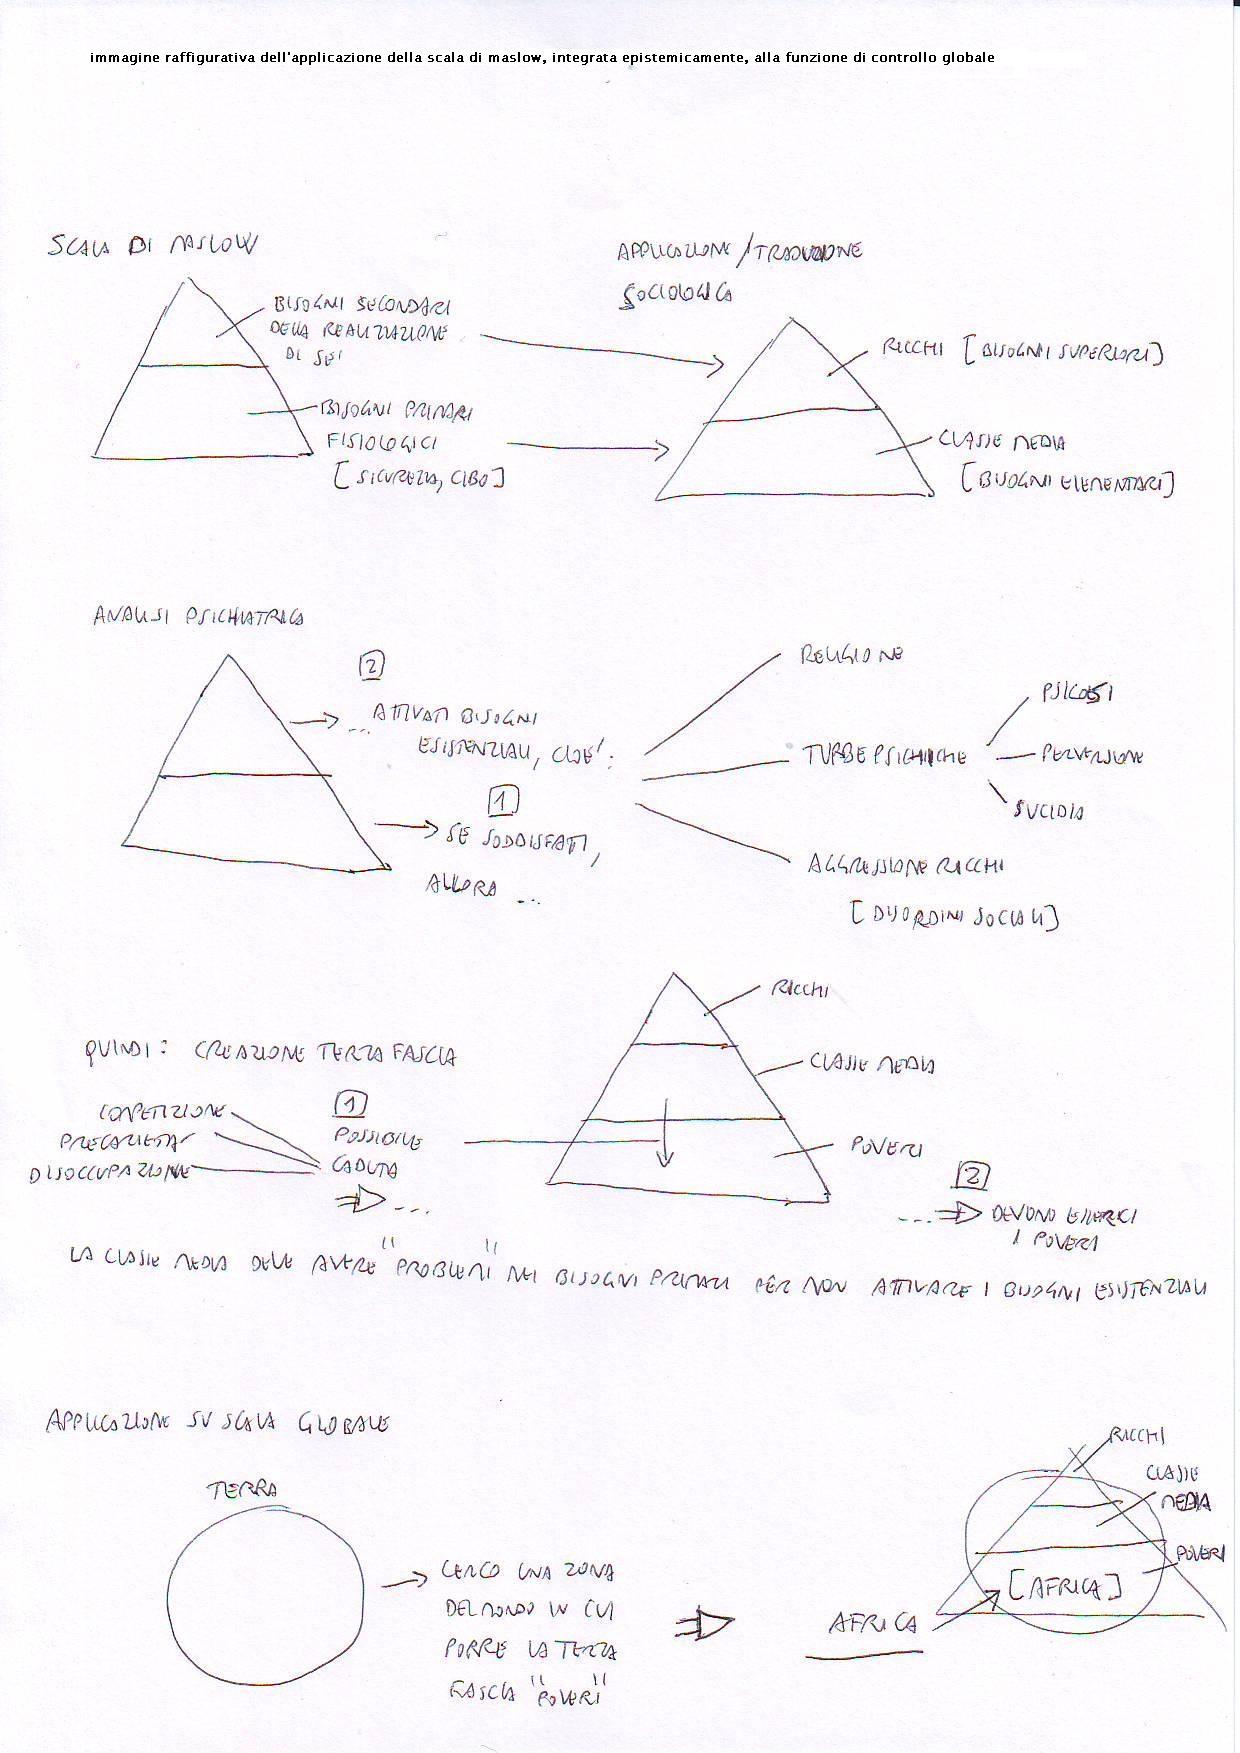 immagine raffigurativa dell'applicazione della scala di maslow, integrata epistemicamente, alla funzione di controllo globale
SCALA DI MASLOW
BISOGNI SECONDARI
DELLA REALIZZAZIONE
DI SE'
BISOGNI PRIMARI
FISIOLOGICI
[SICUREZZA, CIBO]
APPLICAZIONE/TRADUZIONE
SOCIOLOGICA
RICCHI [BISOGNI SUPERIORI]
CLASSE MEDIA
[BISOGNI ELEMENTARI]
ANALISI PSICHIATRICA
2
... ATTIVATI BISOGNI
ESISTENZIALI, CIOE':
1
SE SODDISFATTI,
ALLORA ...
RELIGIONE
TURBE PSICHICHE
PSICOSI
PERVERSIONE
SUCIDIO
AGGRESSIONE RICCHI
[DISORDINI SOCIALI]
QUINDI: CREAZIONE TERZA FASCIA
COMPETIZIONE
PRECARIETA'
DISOCCUPAZIONE
1
POSSIBILE
CADUTA
...
RICCHI
CLASSE MEDIA
POVERI
2
... DEVONO ESSERCI
I POVERI
LA CLASSE MEDIA DEVE AVERE "PROBLEMI" NEI BISOGNI PRIMARI PER NON ATTIVARE I BISOGNI ESISTENZIALI
APPLICAZIONE SU SCALA GLOBALE
TERRA
CERCO UNA ZONA
DEL MONDO IN CUI
PORRE LA TERZA
FASCIA "POVERI"
AFRICA
RICCHI
CLASSE
MEDIA
POVERI
[AFRICA]